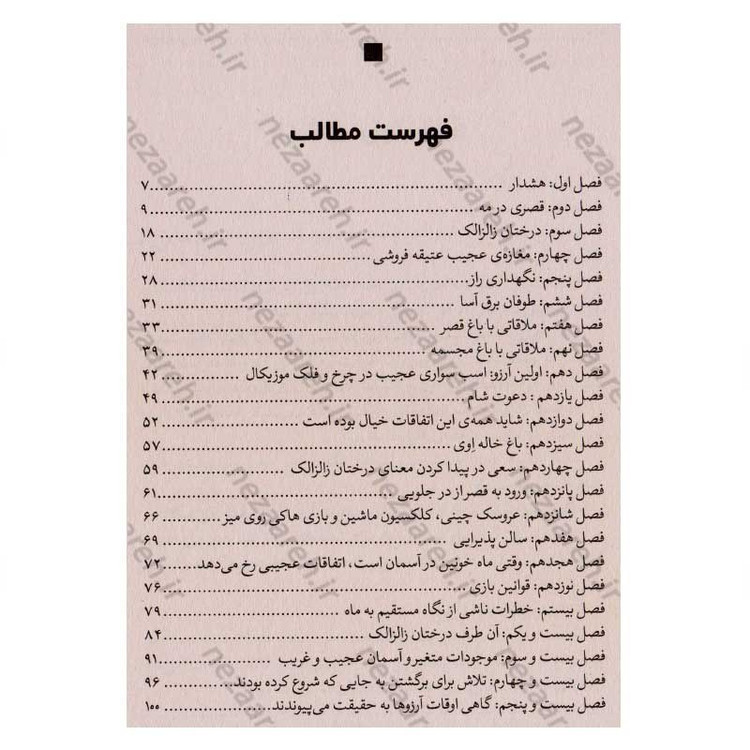 فهرست مطالب
فصل اول: هشدار ................................................ ۷
فصل دوم: قصری در مه ................................................ ۹
فصل سوم: درختان زالزالک ................................................ ۱۸
فصل چهارم: مغازه‌ی عجیب عتیقه فروشی ................................ ۲۲
فصل پنجم: نگهداری راز ................................................ ۲۸
فصل ششم: طوفان برق آسا ................................................ ۳۱
فصل هفتم: ملاقاتی با باغ قصر ................................ ۳۳
فصل نهم: ملاقاتی با باغ مجسمه ................................ ۳۹
فصل دهم: اولین آرزو: اسب سواری عجیب در چرخ و فلک موزیکال ............ ۴۲
فصل یازدهم : دعوت شام ................................................ ۴۹
فصل دوازدهم: شاید همه‌ی این اتفاقات خیال بوده است ................ ۵۲
فصل سیزدهم: باغ خاله اِوی ................................ ۵۷
فصل چهاردهم: سعی در پیدا کردن معنای درختان زالزالک ................ ۵۹
فصل پانزدهم: ورود به قصر از در جلویی ................................ ۶۱
فصل شانزدهم: عروسک چینی، کلکسیون ماشین و بازی هاکی روی میز ............ ۶۶
فصل هفدهم: سالن پذیرایی ................................ ۶۹
فصل هجدهم: وقتی ماه خونین در آسمان است، اتفاقات عجیبی رخ می‌دهد......... ۷۲
فصل نوزدهم: قوانین بازی ................................ ۷۶
فصل بیستم: خطرات ناشی از نگاه مستقیم به ماه ........................ ۷۹
فصل بیست و یکم: آن طرف درختان زالزالک ........................ ۸۴
فصل بیست و سوم: موجودات متغیر و آسمان عجیب و غریب ................ ۹۱
فصل بیست و چهارم: تلاش برای برگشتن به جایی که شروع کرده بودند............ ۹۶
فصل بیست و پنجم: گاهی اوقات آرزوها به حقیقت می‌پیوندند................ ۱۰۰
nezaareh.ir